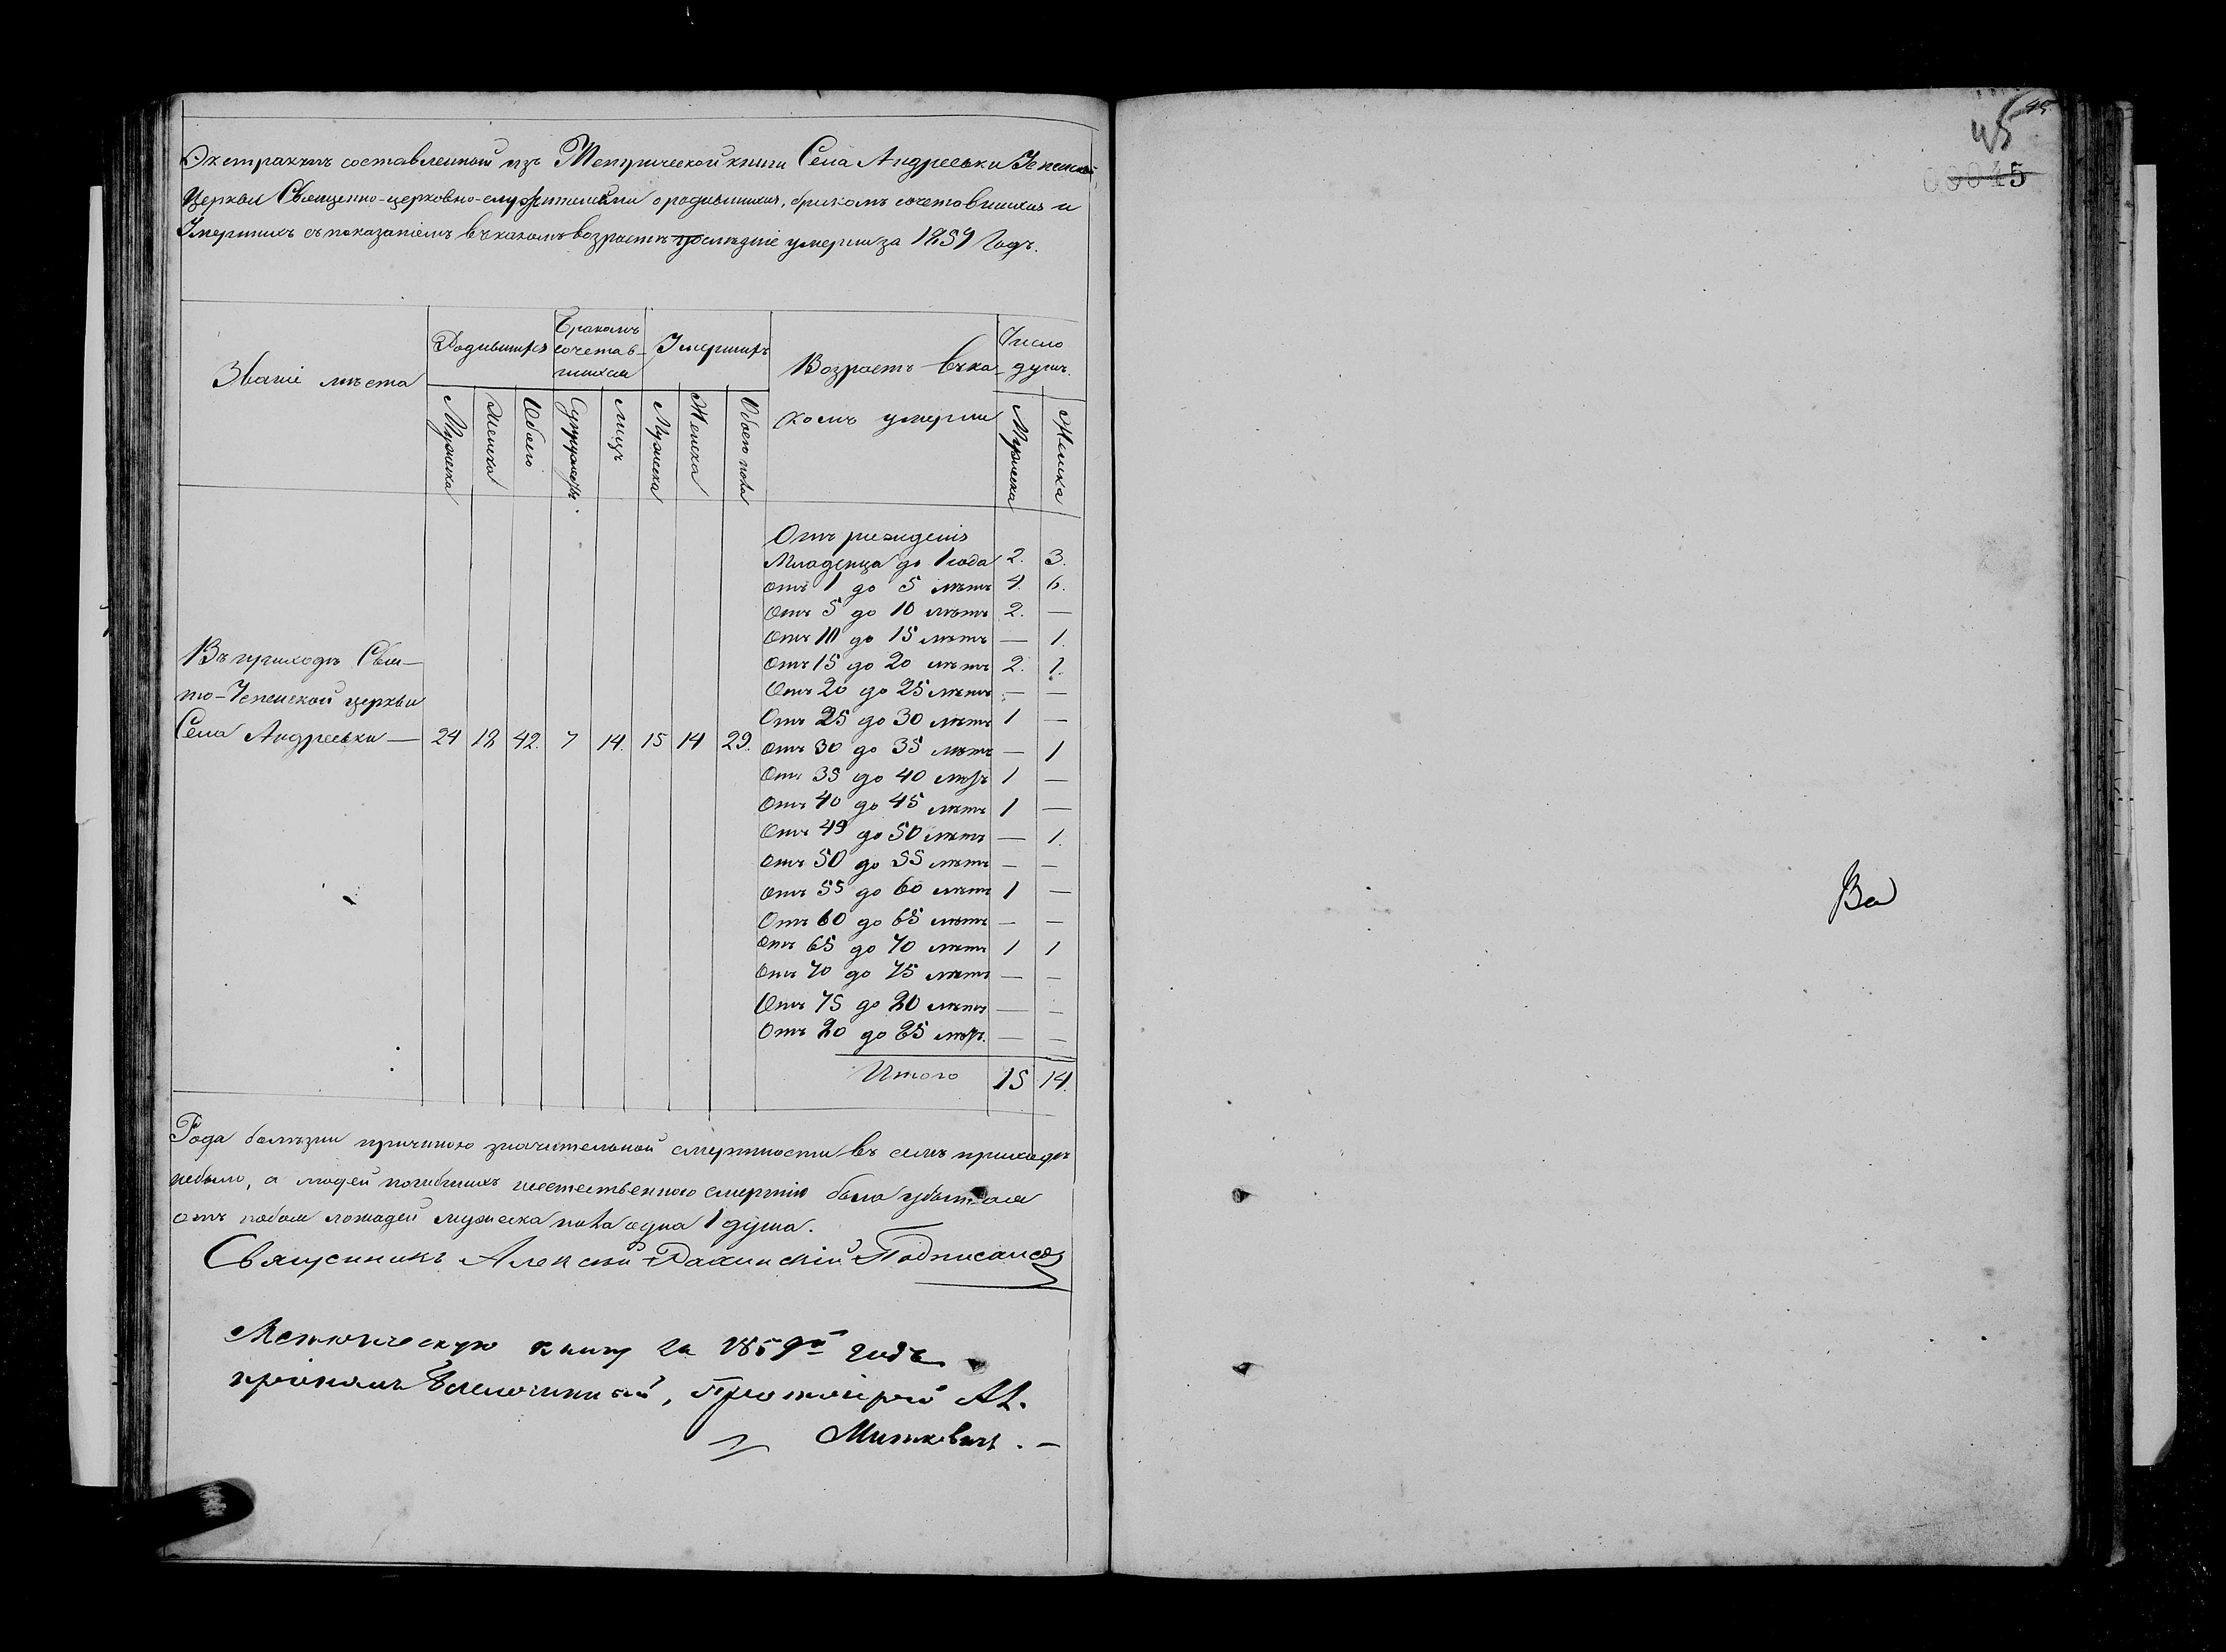 Экстрактъ составленный изъ Метрической книги Села Андреевки Успенской
Церкви Священно-церковно-служителями о родившихся, бракомъ сочетавшихся и
Умершихъ съ показаніемъ въ какомъ возрастѣ последніе умерли за 1859 Годъ.
Званіе мѣста
Родившихся
Бракомъ
сочетав-
шихся
Умершихъ
Возрастъ въ ка-
комъ умерли
Число
душъ.
Мужеска
Женска
Обоего
Супружествъ.
Лицъ
Мужеска
Женска
Обоего пола
Мужеска
Женска
Отъ рожденія
Младенца до 1 года 2. 3.
Отъ 1 до 5 лѣтъ 4. 6.
Отъ 5 до 10 лѣтъ 2. —
Отъ 10 до 15 лѣтъ — 1.
Отъ 15 до 20 лѣтъ 2. 1.
Отъ 20 до 25 лѣтъ — —
Отъ 25 до 30 лѣтъ 1 —
Отъ 30 до 35 лѣтъ — 1
Отъ 35 до 40 лѣтъ 1 —
Отъ 40 до 45 лѣтъ 1 —
Отъ 45 до 50 лѣтъ — 1.
Отъ 50 до 55 лѣтъ — —
Отъ 55 до 60 лѣтъ 1 —
Отъ 60 до 65 лѣтъ — —
Отъ 65 до 70 лѣтъ 1 1
Отъ 70 до 75 лѣтъ — —
Отъ 75 до 80 лѣтъ — —
Отъ 80 до 85 лѣтъ. — —
Итого 15 14.
Въ приходѣ Свя-
то-Успенской церкви
Села Андреевки — 24 18 42. 7 14. 15 14 29.
Рода болѣзни причиною значительной смертности въ семъ приходѣ
небыло, а людей погибшихъ неестественною смертію была
отъ побоя лошадей мужеска пола одна 1 душа.
Священикъ Алексій Подписался
Метрическую книгу за 1859й годъ
принялъ Благочинный, Протоіерей Ал.
Миткевичъ. —
45
45
00045
Ва